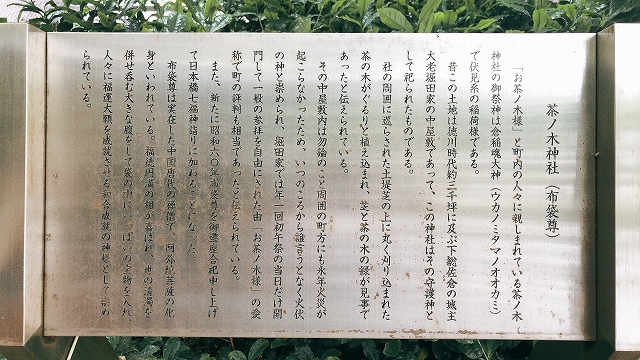 茶ノ木神社（布袋尊）
「お茶ノ木様」と町内の人々に親しまれている茶ノ木
神社の御祭神は倉稲魂大神（ウカノミタマノオオカミ）
で伏見系の稲荷様である。
昔この土地は徳川時代約三千坪に及ぶ下総佐倉の城主
大老堀田家の中屋敷であって、この神社はその守護神と
して祀られたものである。
社の周囲に巡らされた土堤芝の上に丸く刈り込まれた
茶の木がぐるりと植え込まれ、芝と茶の木の緑が見事で
あったと伝えられている。
その中屋敷内は勿論のこと周囲の町方にも永年火災が
起こらなかったため、いつのころから誰言うとなく火伏
の神と崇められ、堀田家では年一回初午祭の当日だけ開
門して一般の参拝を自由にされた由「お茶ノ木様」の愛
称で町の評判も相当であったと伝えられている。
また、新たに昭和六〇年布袋尊を御遷座合祀申し上げ
て日本橋七福神詣りに加わることになった。
布袋尊は実在した中国唐代の禅僧で、阿弥陀菩薩の化
身といわれている。福徳円満の相が喜ばれ、世の清濁を
併せ呑む大きな腹をして袋の中にいっぱいの宝物を入れ、
人々に福運大願を成就させる和合成就の神様として崇め
られている。